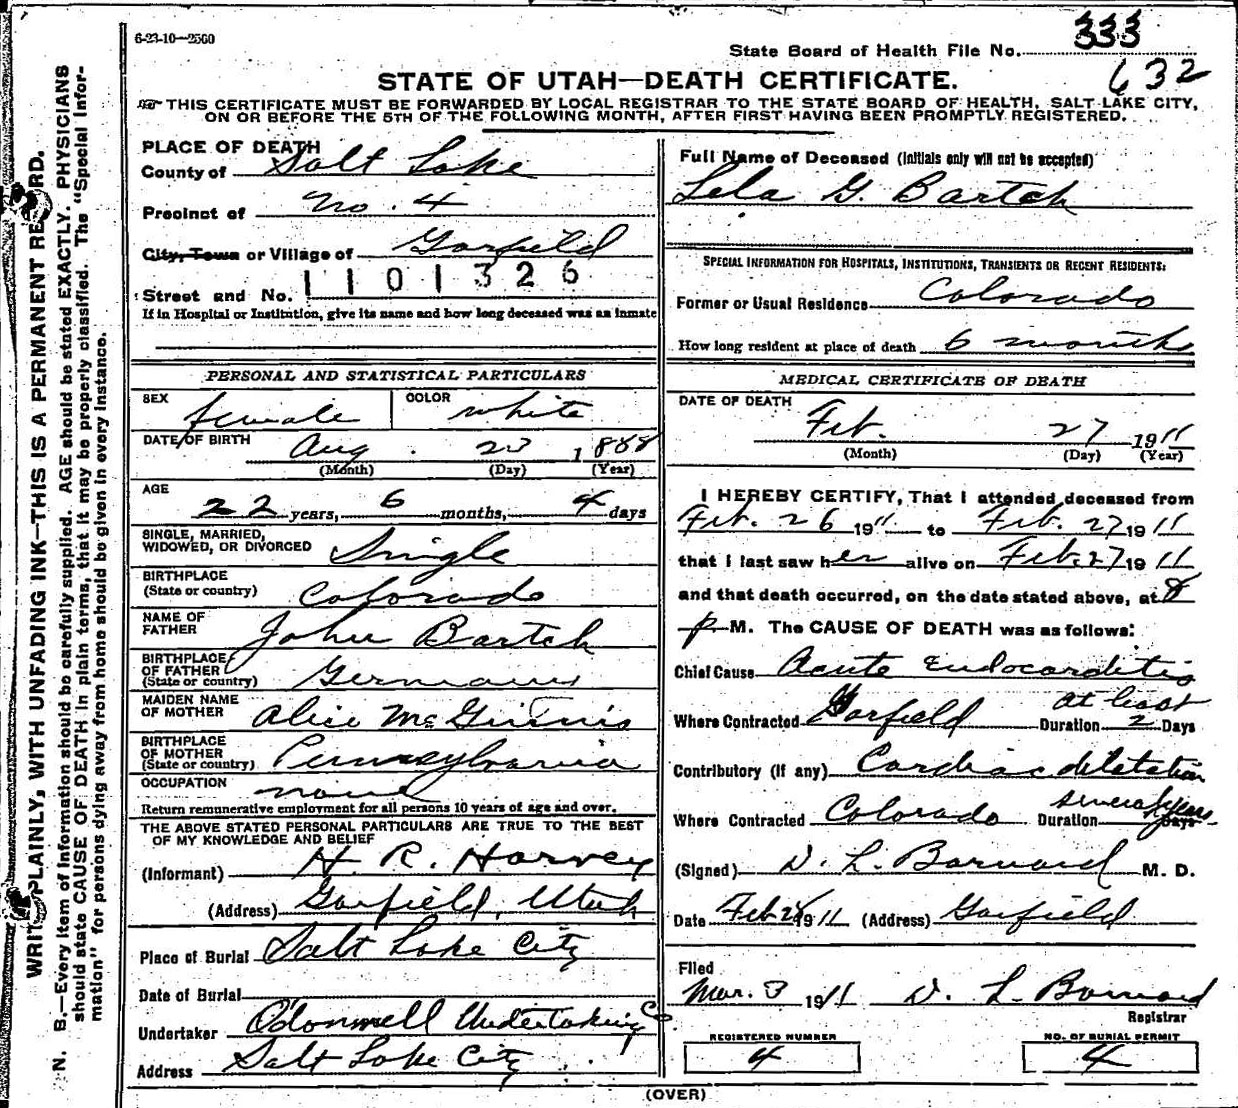 6-23-10—2500
State Board of Health File No. 333
632
STATE OF UTAH—DEATH CERTIFICATE.
THIS CERTIFICATE MUST BE FORWARDED BY LOCAL REGISTRAR TO THE STATE BOARD OF HEALTH, SALT LAKE CITY,
ON OR BEFORE THE 5TH OF THE FOLLOWING MONTH, AFTER FIRST HAVING BEEN PROMPTLY REGISTERED.
WRITE PLAINLY, WITH UNFADING INK—THIS IS A PERMANENT RECORD.
N. B.—Every item of information should be carefully supplied. AGE should be stated EXACTLY. PHYSICIANS
should state CAUSE OF DEATH in plain terms, that it may be properly classified. The "Special Infor-
mation" for persons dying away from home should be given in every instance.
PLACE OF DEATH
County of Salt Lake
Precinct of No. 4
City, Town or Village of Garfield
1101326
Street and No.
If in Hospital or Institution, give its name and how long deceased was an inmate
PERSONAL AND STATISTICAL PARTICULARS
SEX female COLOR white
DATE OF BIRTH Aug. 23 1888
(Month) (Day) (Year)
AGE
22 years, 6 months, 4 days
SINGLE, MARRIED,
WIDOWED, OR DIVORCED Single
BIRTHPLACE
(State or country) Colorado
NAME OF
FATHER John Bartch
BIRTHPLACE
OF FATHER
(State or country) Germany
MAIDEN NAME
OF MOTHER Alice McGinnis
BIRTHPLACE
OF MOTHER
(State or country) Pennsylvania
OCCUPATION none
Return remunerative employment for all persons 10 years of age and over.
THE ABOVE STATED PERSONAL PARTICULARS ARE TRUE TO THE BEST
OF MY KNOWLEDGE AND BELIEF
(Informant) H. R. Harvey
(Address) Garfield, Utah
Place of Burial Salt Lake City
Date of Burial
Undertaker Odonnell Undertaking Co
Address Salt Lake City
Full Name of Deceased (Initials only will not be accepted)
Lela G. Bartch
SPECIAL INFORMATION FOR HOSPITALS, INSTITUTIONS, TRANSIENTS OR RECENT RESIDENTS:
Former or Usual Residence Colorado
How long resident at place of death 6 months
MEDICAL CERTIFICATE OF DEATH
DATE OF DEATH
Feb. 27 1911
(Month) (Day) (Year)
I HEREBY CERTIFY, That I attended deceased from
Feb. 26 1911 to Feb. 27 1911
that I last saw her alive on Feb. 27 1911
and that death occurred, on the date stated above, at 8
p M. The CAUSE OF DEATH was as follows:
Chief Cause Acute Endocarditis
Where Contracted Garfield Duration at least 2 Days
Contributory (if any) Cardiac diletation
Where Contracted Colorado Duration several years Days
(Signed) D. L. Barnard M. D.
Date Feb 28 1911 (Address) Garfield
Filed
Mar. 3 1911 D. L. Barnard
Registrar
REGISTERED NUMBER
4
NO. OF BURIAL PERMIT
4
(OVER)